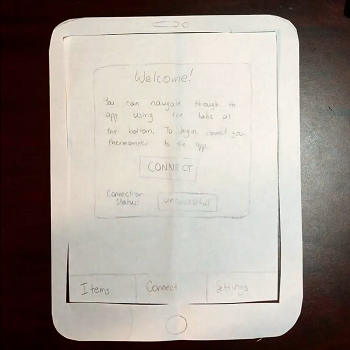 Welcome!
You can navigate through the
app using the tabs at
the bottom. To begin connect your
thermometer to the app.
CONNECT
Connection
Status:
unsuccessful
Items
Connect
Settings